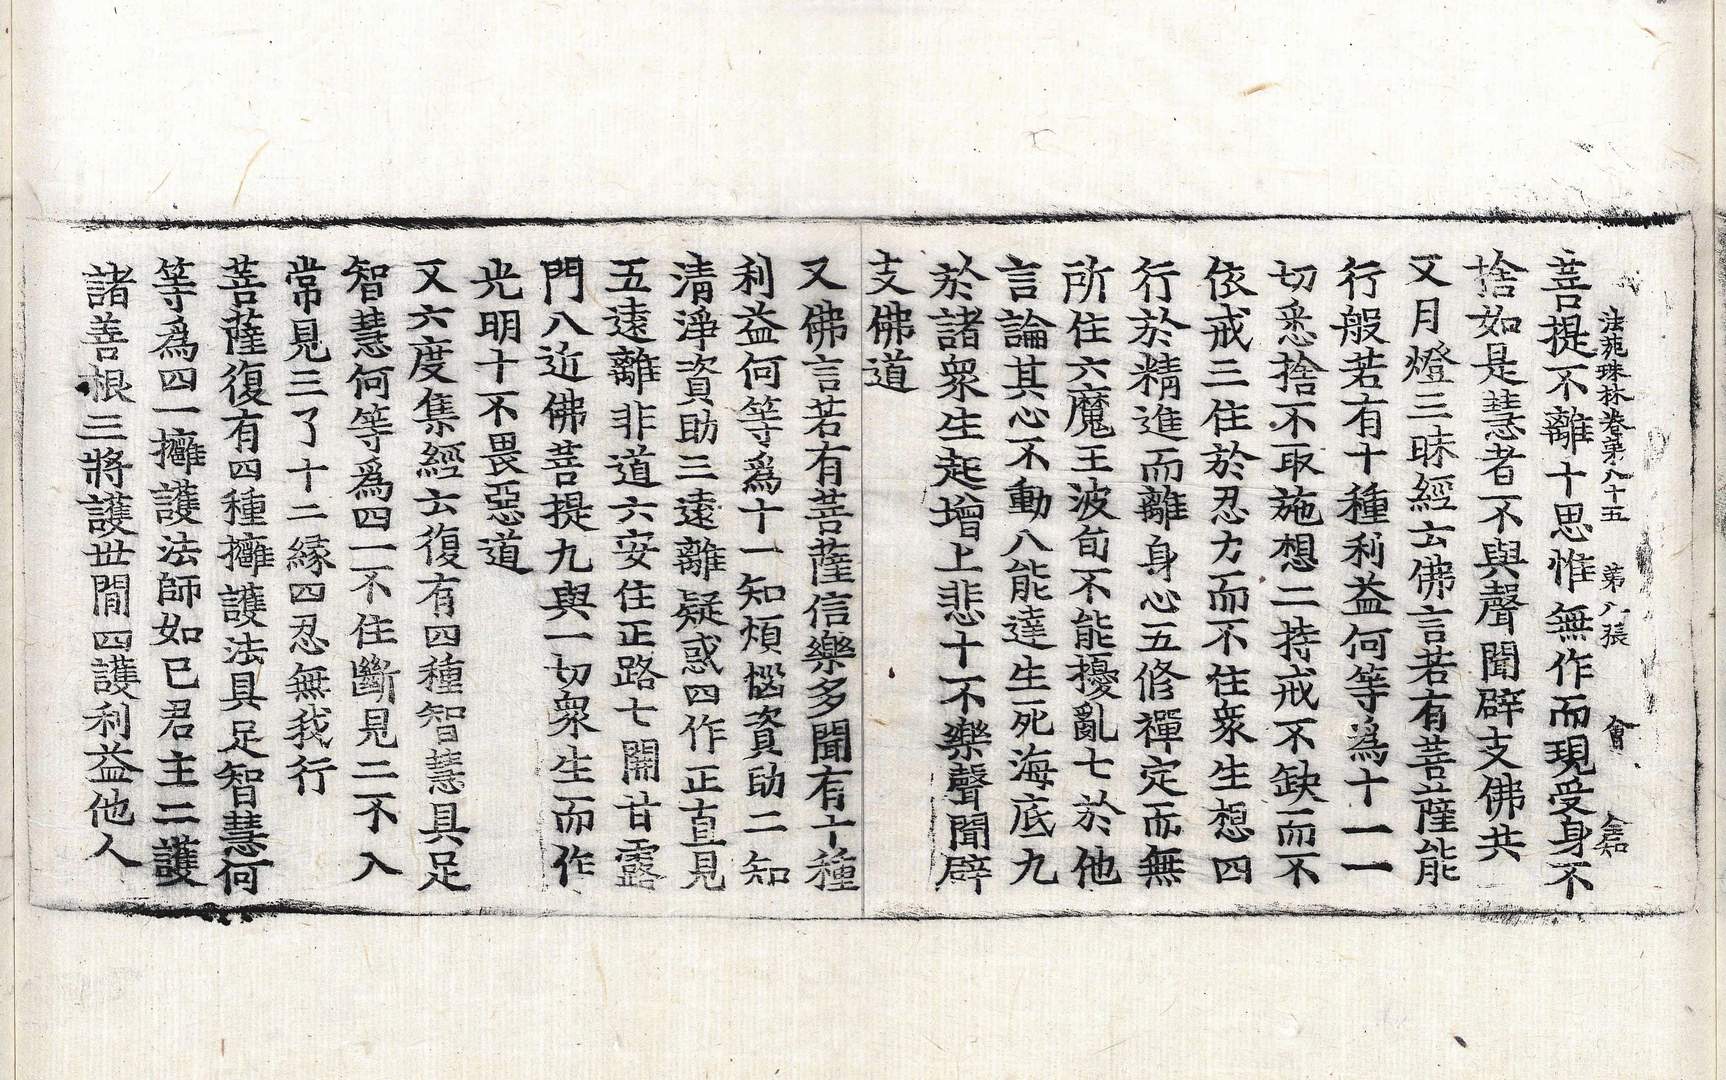 法苑珠林卷第八十五　第八張　會
菩提不離十思惟無作而現受身不
捨如是慧者不與聲聞辟支佛共
又月燈三昧經云佛言若有菩薩能
行般若有十種利益何等爲十一一
切悉捨不取施想二持戒不缺而不
依戒三住於忍力而不住衆生想四
行於精進而離身心五修禪定而無
所住六魔王波旬不能擾亂七於他
言論其心不動八能達生死海底九
於諸衆生起增上悲十不樂聲聞辟
支佛道
又佛言若有菩薩信樂多聞有十種
利益何等爲十一知煩惱資助二知
清淨資助三遠離疑惑四作正直見
五遠離非道六安住正路七開甘露
門八近佛菩提九與一切衆生而作
光明十不畏惡道
又六度集經云復有四種智慧具足
智慧何等爲四一不住斷見二不入
常見三了十二緣四忍無我行
菩薩復有四種擁護法具足智慧何
等爲四一擁護法師如己君主二護
諸善根三將護世間四護利益他人